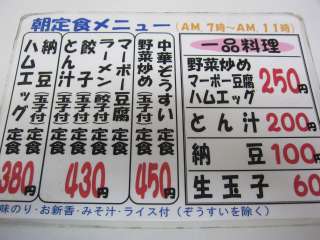 朝定食メニュー (AM.7時〜AM.11時)
中華ぞうすい定食
野菜炒め(玉子付)定食
450円
マーボー豆腐定食
ラーメン(玉子付)定食
餃子(玉子付)定食
とん汁(玉子付)定食
430円
納豆定食
ハムエッグ定食
380円
一品料理
野菜炒め
マーボー豆腐
ハムエッグ
250円
とん汁 200円
納豆 100円
生玉子 60
味のり・お新香・みそ汁・ライス付(ぞうすいを除く)